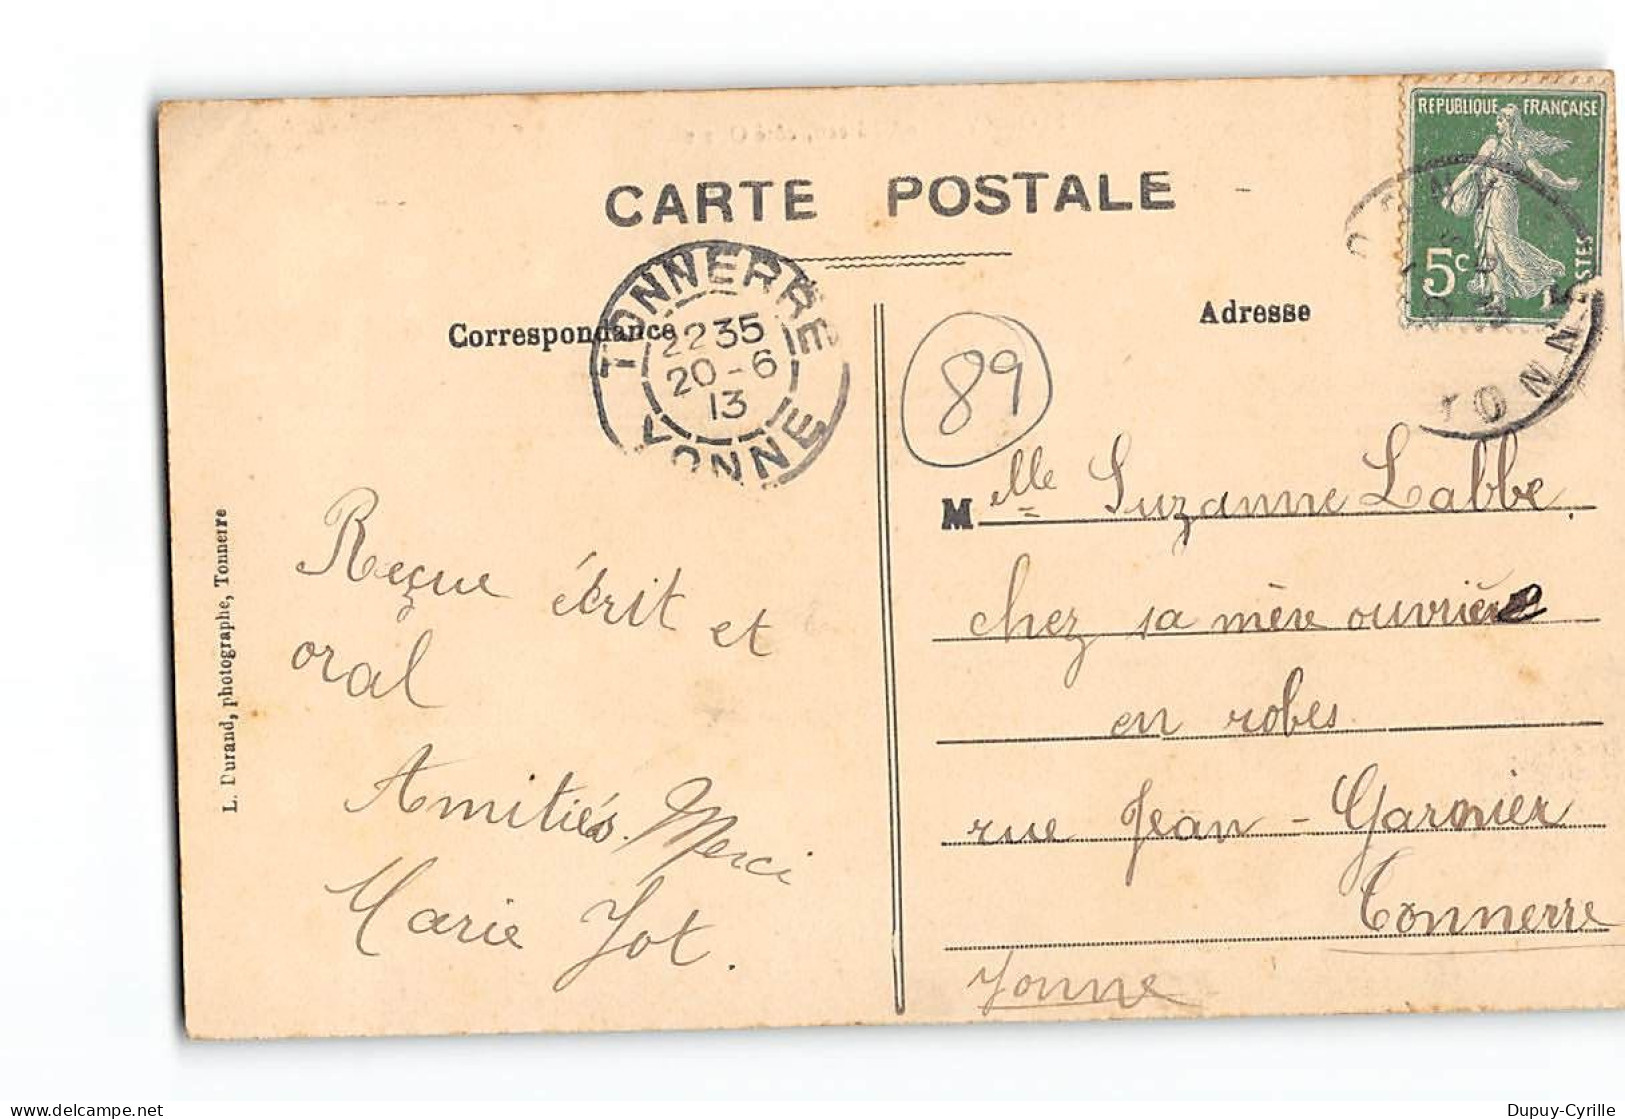 CARTE POSTALE
Correspondance
Adresse
TONNERRE
22 35
20-6
13
YONNE
REPUBLIQUE FRANÇAISE
5c
POSTES
YONNE
89
Reçue écrit et
oral
Amitiés. Merci
Marie Jot.
Melle Suzanne Labbe.
chez sa mère ouvrière
en robes
rue Jean-Garnier
Tonnerre
Yonne
L. Durand, photographe, Tonnerre
Dupuy-Cyrille